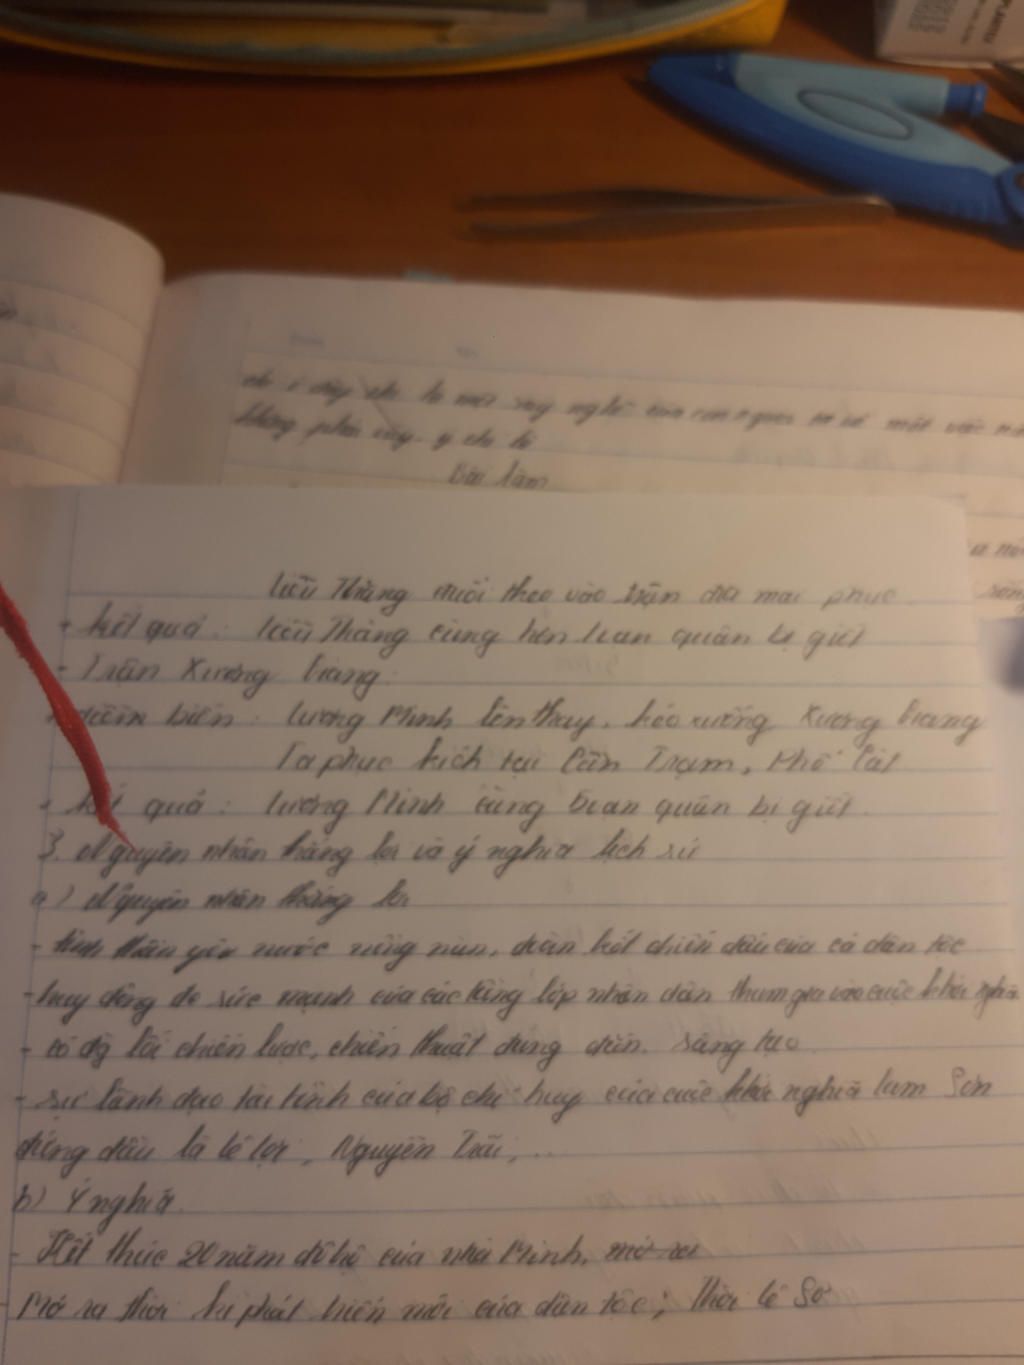 không phải vậy. ý chỉ là
Bài làm
Liễu Thăng đuổi theo vào trận địa mai phục
+ kết quả: Liễu Thăng cùng hơn vạn quân bị giết
- Trận Xương Giang:
+ diễn biến: Lương Minh lên thay, kéo xuống Xương Giang
Ta phục kích tại Cần Trạm, Phố Cát
+ kết quả: Lương Minh cùng vạn quân bị giết.
3. Nguyên nhân thắng lợi và ý nghĩa lịch sử
a) Nguyên nhân thắng lợi
- tinh thần yêu nước nồng nàn, đoàn kết chiến đấu của cả dân tộc
- huy động đc sức mạnh của các tầng lớp nhân dân tham gia vào cuộc khởi nghĩa
- có lối chiến lược, chiến thuật đúng đắn. sáng tạo
- sự lãnh đạo tài tình của bộ chỉ huy của cuộc khởi nghĩa Lam Sơn
đứng đầu là Lê Lợi, Nguyễn Trãi,...
b) Ý nghĩa.
- Kết thúc 20 năm đô hộ của nhà Minh, mở ra
- Mở ra thời kì phát triển mới của dân tộc; Thời Lê Sơ